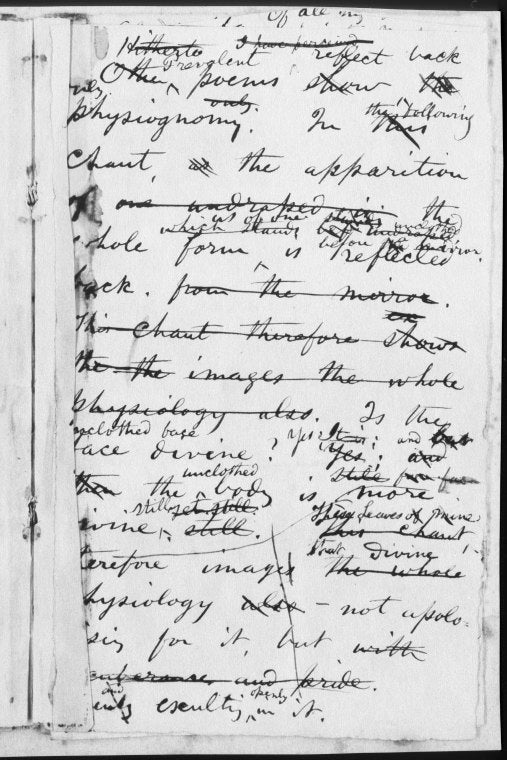 Of all my
Hitherto I have perceived reflect back
Other prevalent poems show the
only.
physiognomy. only. In this the following
chant, as the apparition
of one undraped in the
which stands as of one before unclothed mirror.
whole form is reflected
back. from the mirror.
This chant therefore shows
the the images the whole
physiology also. Is the
unclothed base yes: it is: and but
face divine? yes. and
unclothed still far
then the body is more
still yet still. These Leaves of mine
divine, still. this chant,
that divine
therefore images the whole
physiology also — not apolo-
gising for it, but with
exuberance and pride.
and openly
only exulting in it.